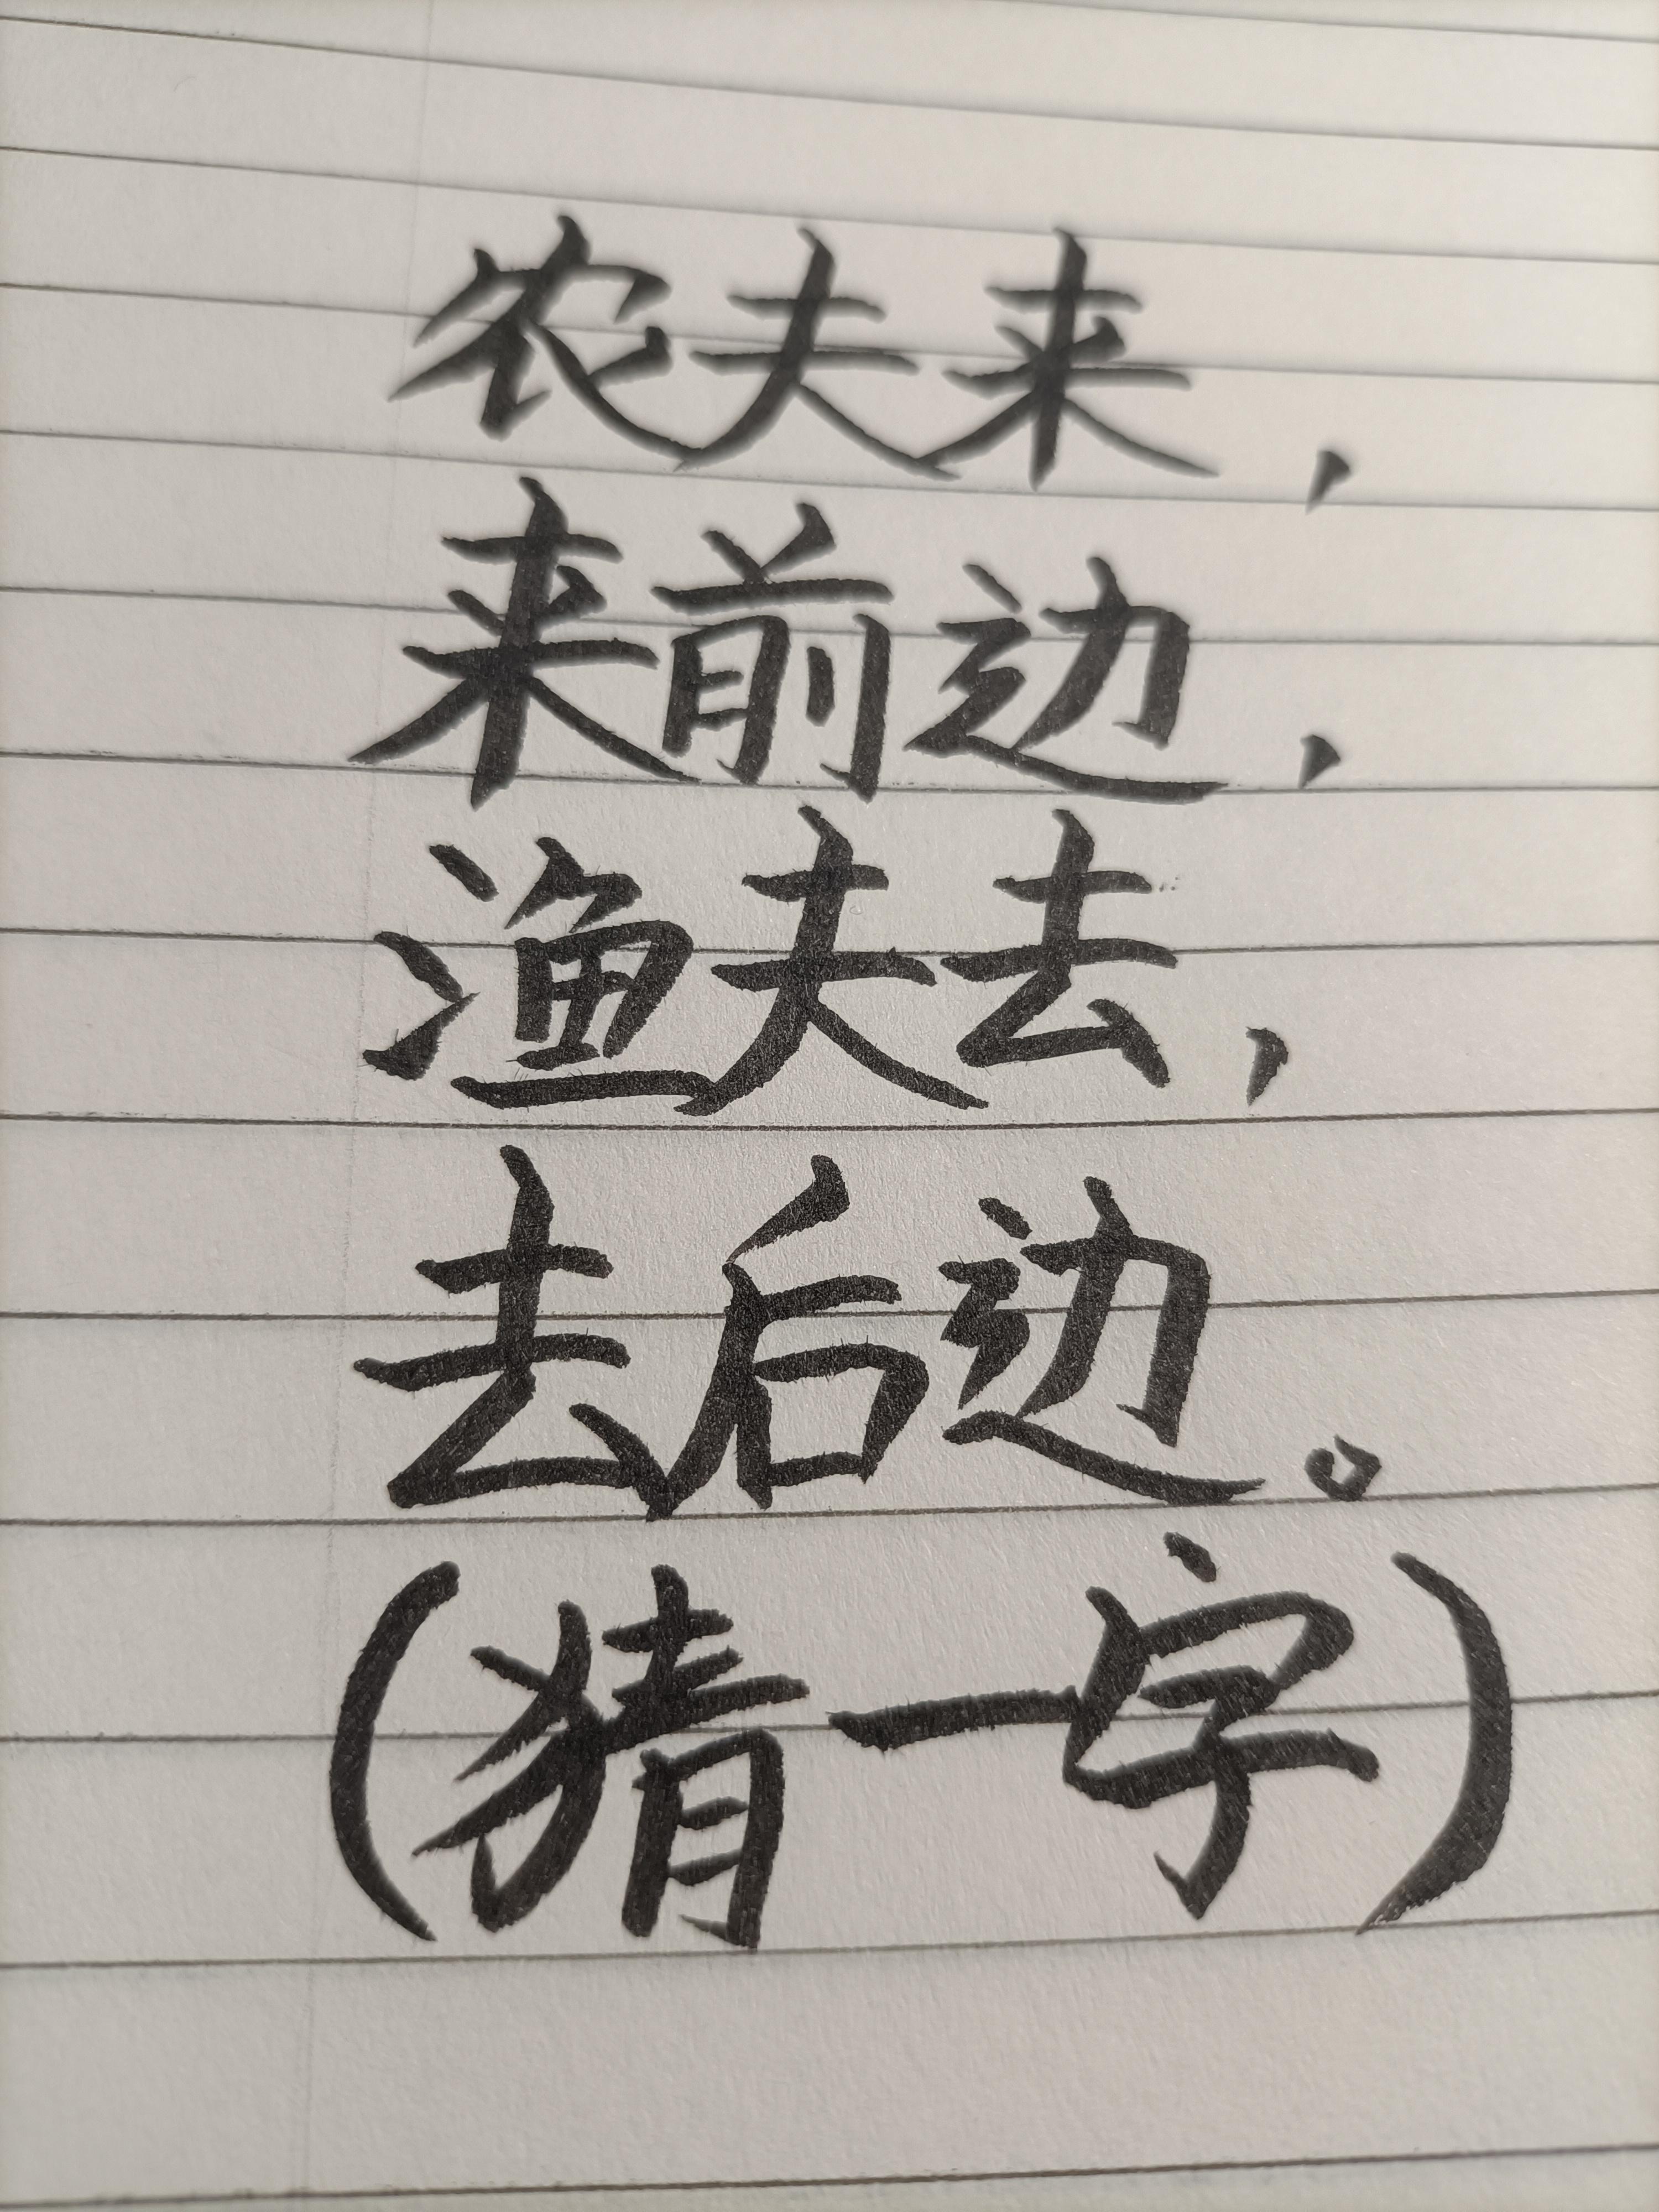 农夫来，
来前边，
渔夫去，
去后边。
（猜一字）